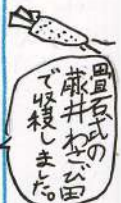 畳石氏の
蔵井わさび田
で収穫しました。